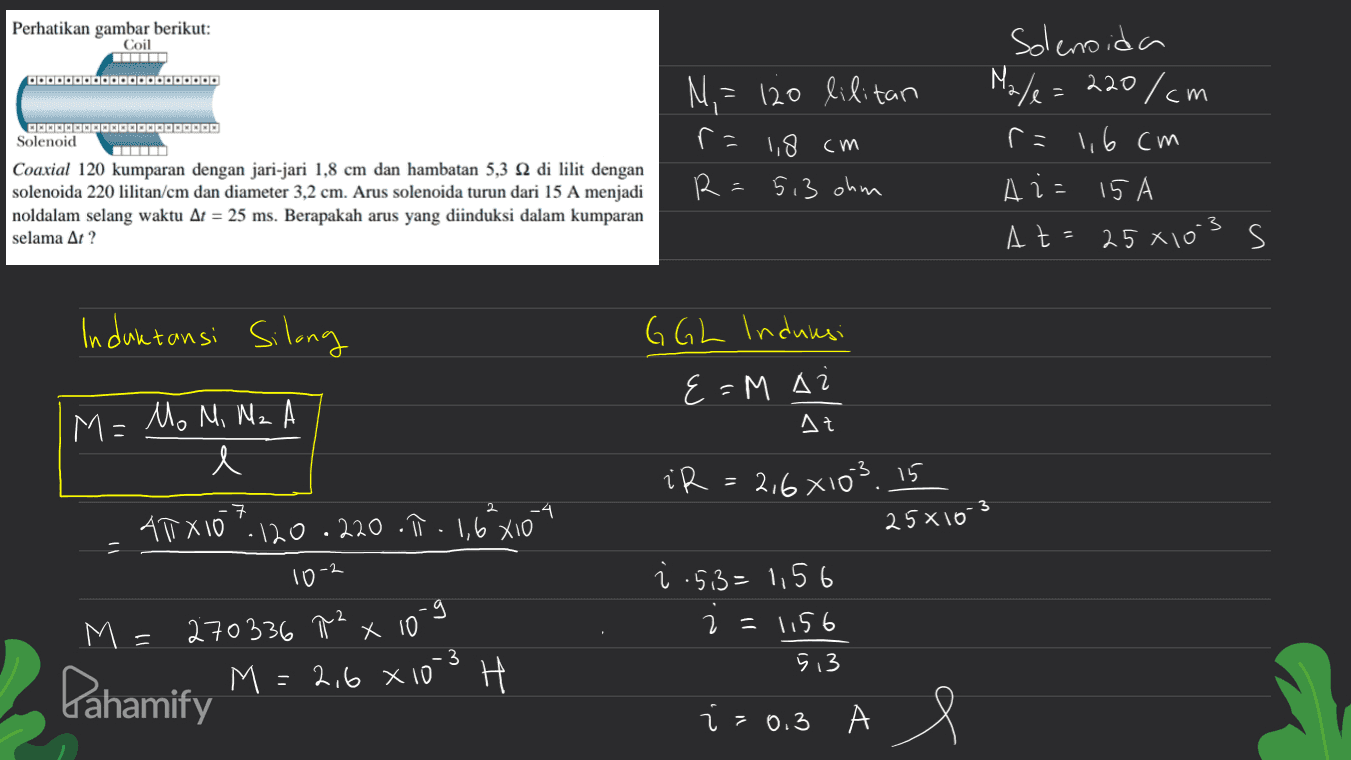 Perhatikan gambar berikut:
Coil
Solenoid
Coaxial 120 kumparan dengan jari-jari 1,8 cm dan hambatan 5,3 Ω di lilit dengan
solenoida 220 lilitan/cm dan diameter 3,2 cm. Arus solenoida turun dari 15 A menjadi
noldalam selang waktu Δt = 25 ms. Berapakah arus yang diinduksi dalam kumparan
selama Δt ?
N₁ = 120 lilitan
r = 1,8 cm
R = 5,3 ohm
Solenoida
N₂/ℓ = 220 /cm
r = 1,6 cm
Δi = 15 A
Δt = 25 x10⁻³ S
Induktansi Silang
M = μ₀ N₁ N₂ A / ℓ
= 4π x10⁻⁷ . 120 . 220 . π . 1,6² x10⁻⁴ / 10⁻²
M = 270336 π² x 10⁻⁹
M = 2,6 x 10⁻³ H
GGL Induksi
ε = M Δi / Δt
iR = 2,6 x10⁻³ . 15 / 25x10⁻³
i . 5,3 = 1,56
i = 1,56 / 5,3
i = 0,3 A
Pahamify